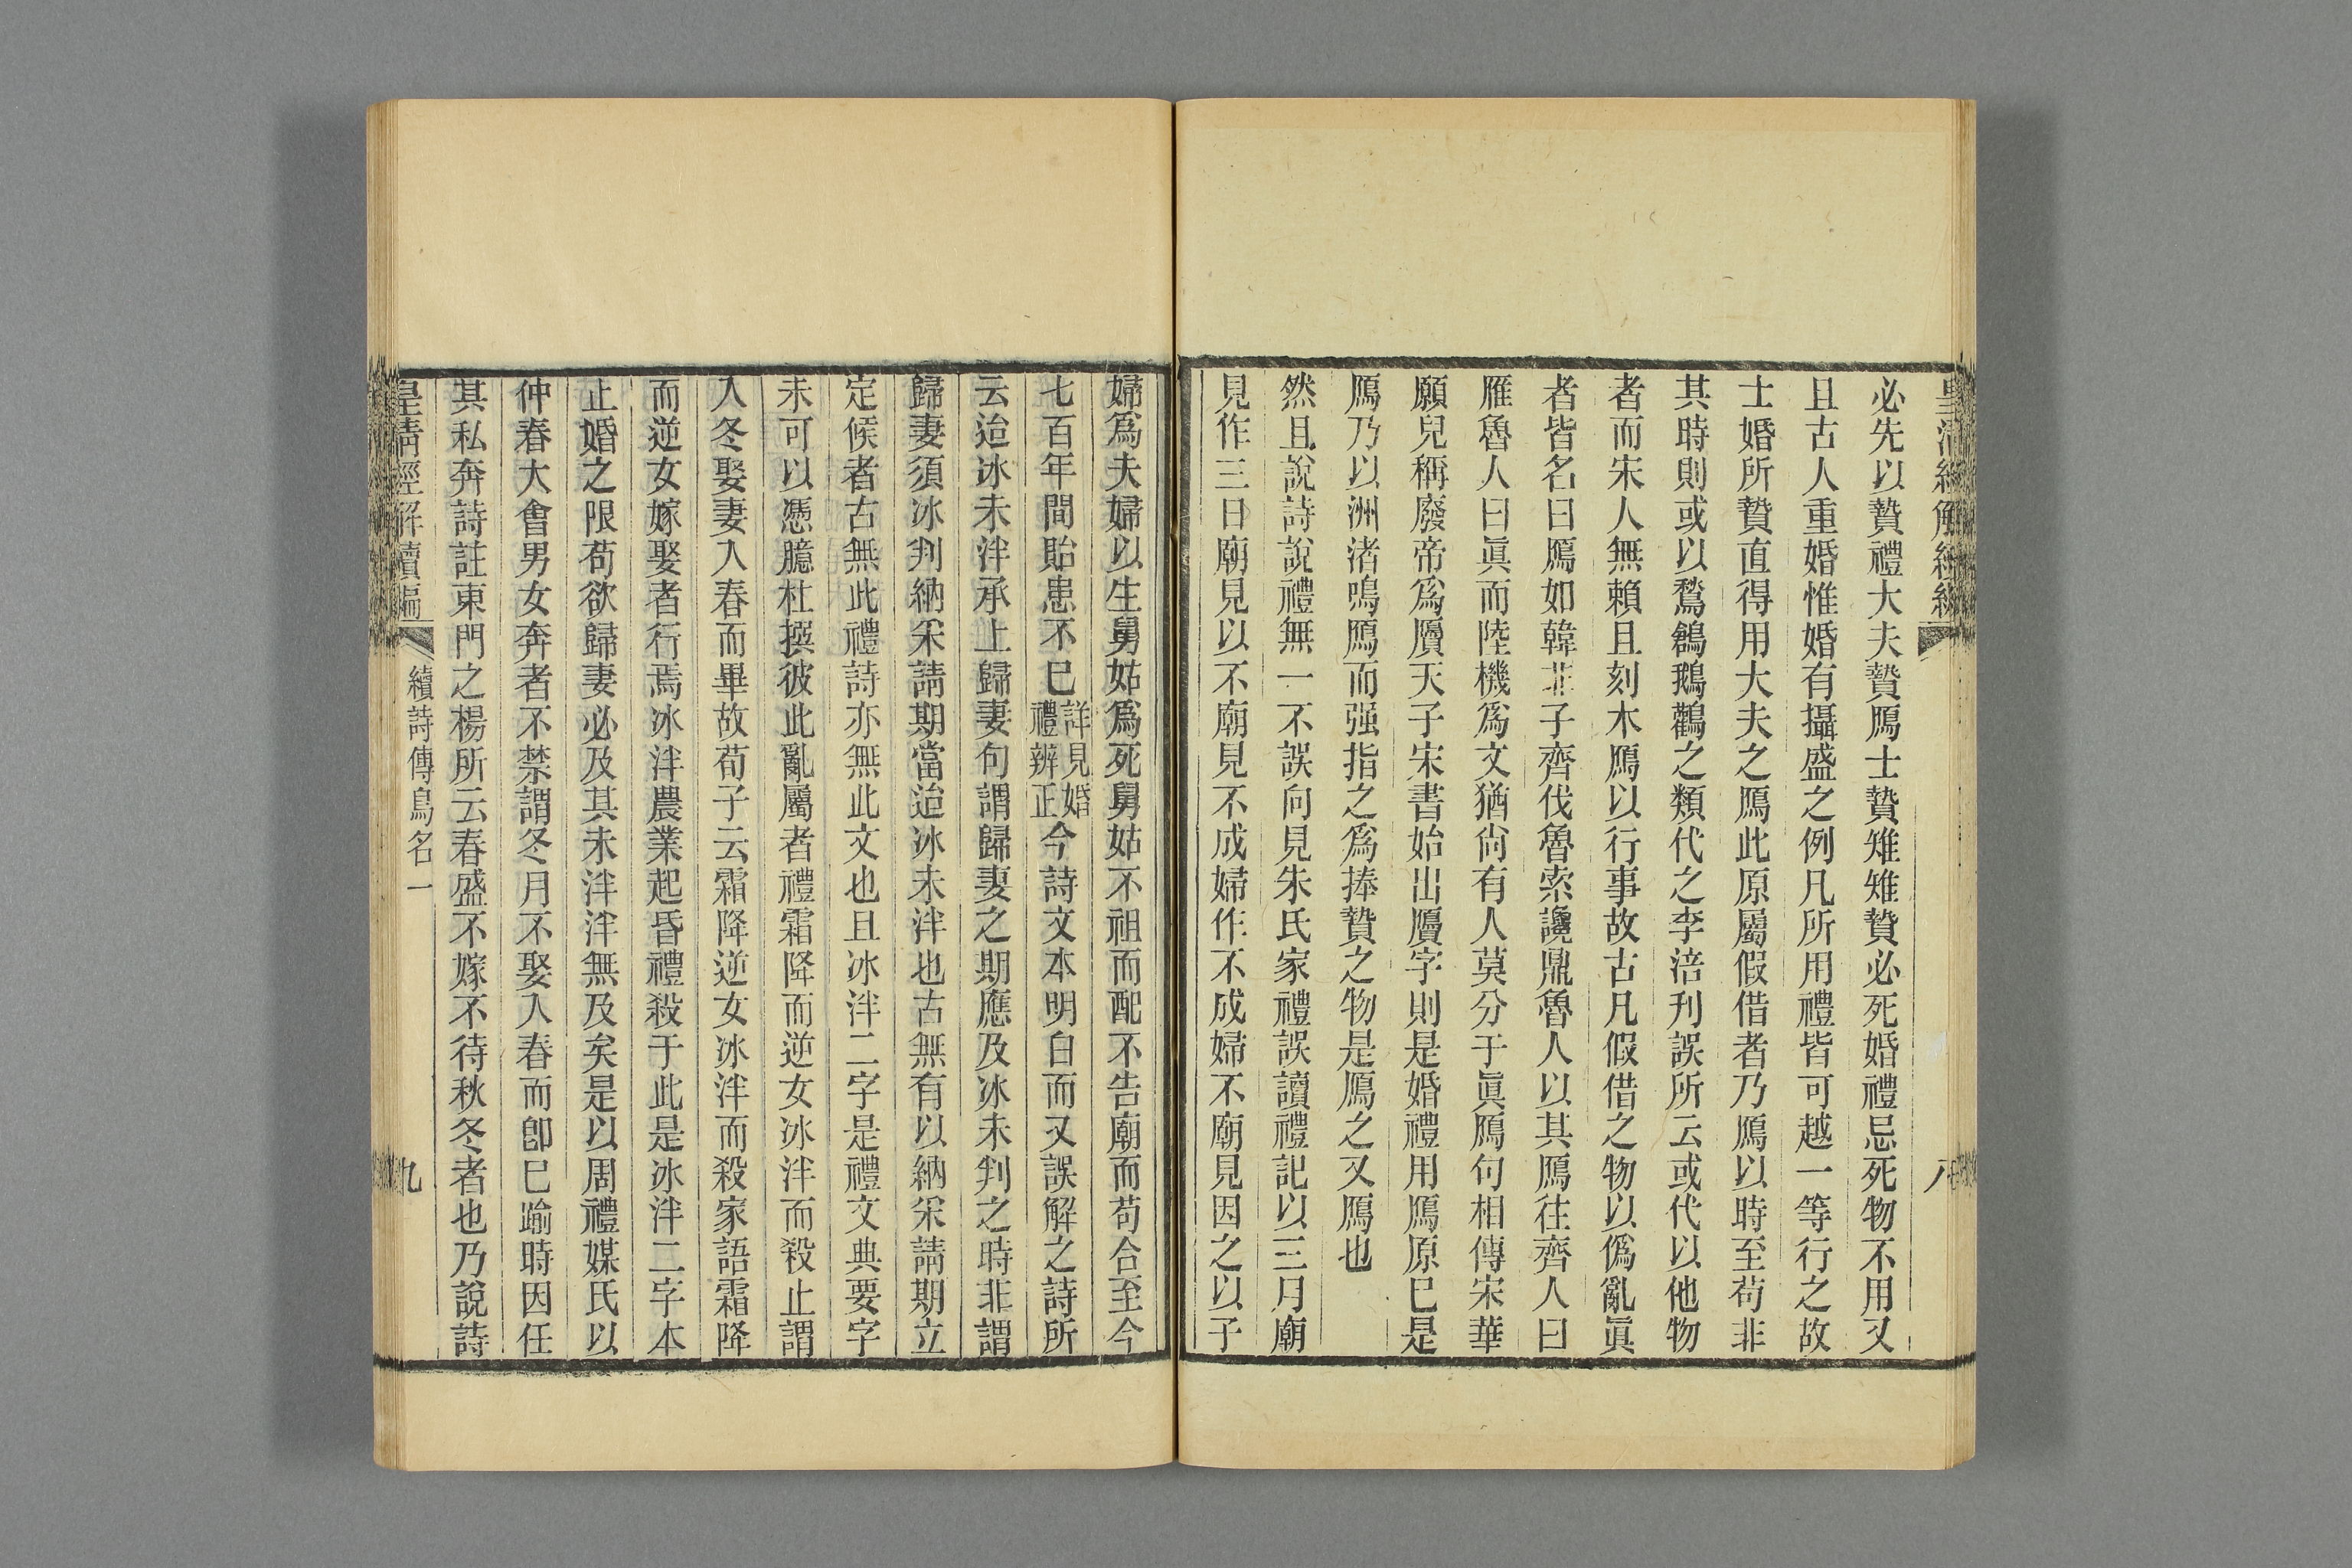 必先以贄禮大夫贄鴈士贄雉雉贄必死婚禮忌死物不用又
且古人重婚惟婚有攝盛之例凡所用禮皆可越一等行之故
士婚所贄直得用大夫之鴈此原屬假借者乃鴈以時至苟非
其時則或以鶖鶬鵝鸛之類代之李涪刋誤所云或代以他物
者而宋人無賴且刻木鴈以行事故古凡假借之物以僞亂眞
者皆名曰鴈如韓非子齊伐魯索讒鼎魯人以其鴈往齊人曰
雁魯人曰眞而陸機爲文猶尙有人莫分于眞鴈句相傳宋華
願兒稱廢帝爲贗天子宋書始出贗字則是婚禮用鴈原已是
鴈乃以洲渚鳴鴈而强指之爲捧贄之物是鴈之又鴈也
然且說詩說禮無一不誤向見朱氏家禮誤讀禮記以三月廟
見作三日廟見以不廟見不成婦作不成婦不廟見因之以子
婦爲夫婦以生舅姑爲死舅姑不祖而配不告廟而苟合至今
七百年間貽患不已詳見婚禮辨正今詩文本明白而又誤解之詩所
云迨冰未泮承上歸妻句謂歸妻之期應及冰未判之時非謂
歸妻須冰判納采請期當迨冰未泮也古無有以納采請期立
定候者古無此禮詩亦無此文也且冰泮二字是禮文典要字
未可以憑臆杜撰彼此亂屬者禮霜降而逆女冰泮而殺止謂
入冬娶妻入春而畢故荀子云霜降逆女冰泮而殺家語霜降
而逆女嫁娶者行焉冰泮農業起昏禮殺于此是冰泮二字本
止婚之限苟欲歸妻必及其未泮泮無及矣是以周禮媒氏以
仲春大會男女奔者不禁謂冬月不娶入春而卽已踰時因任
其私奔詩註東門之楊所云春盛不嫁不待秋冬者也乃說詩
皇淸經解續編
續詩傳鳥名一
九